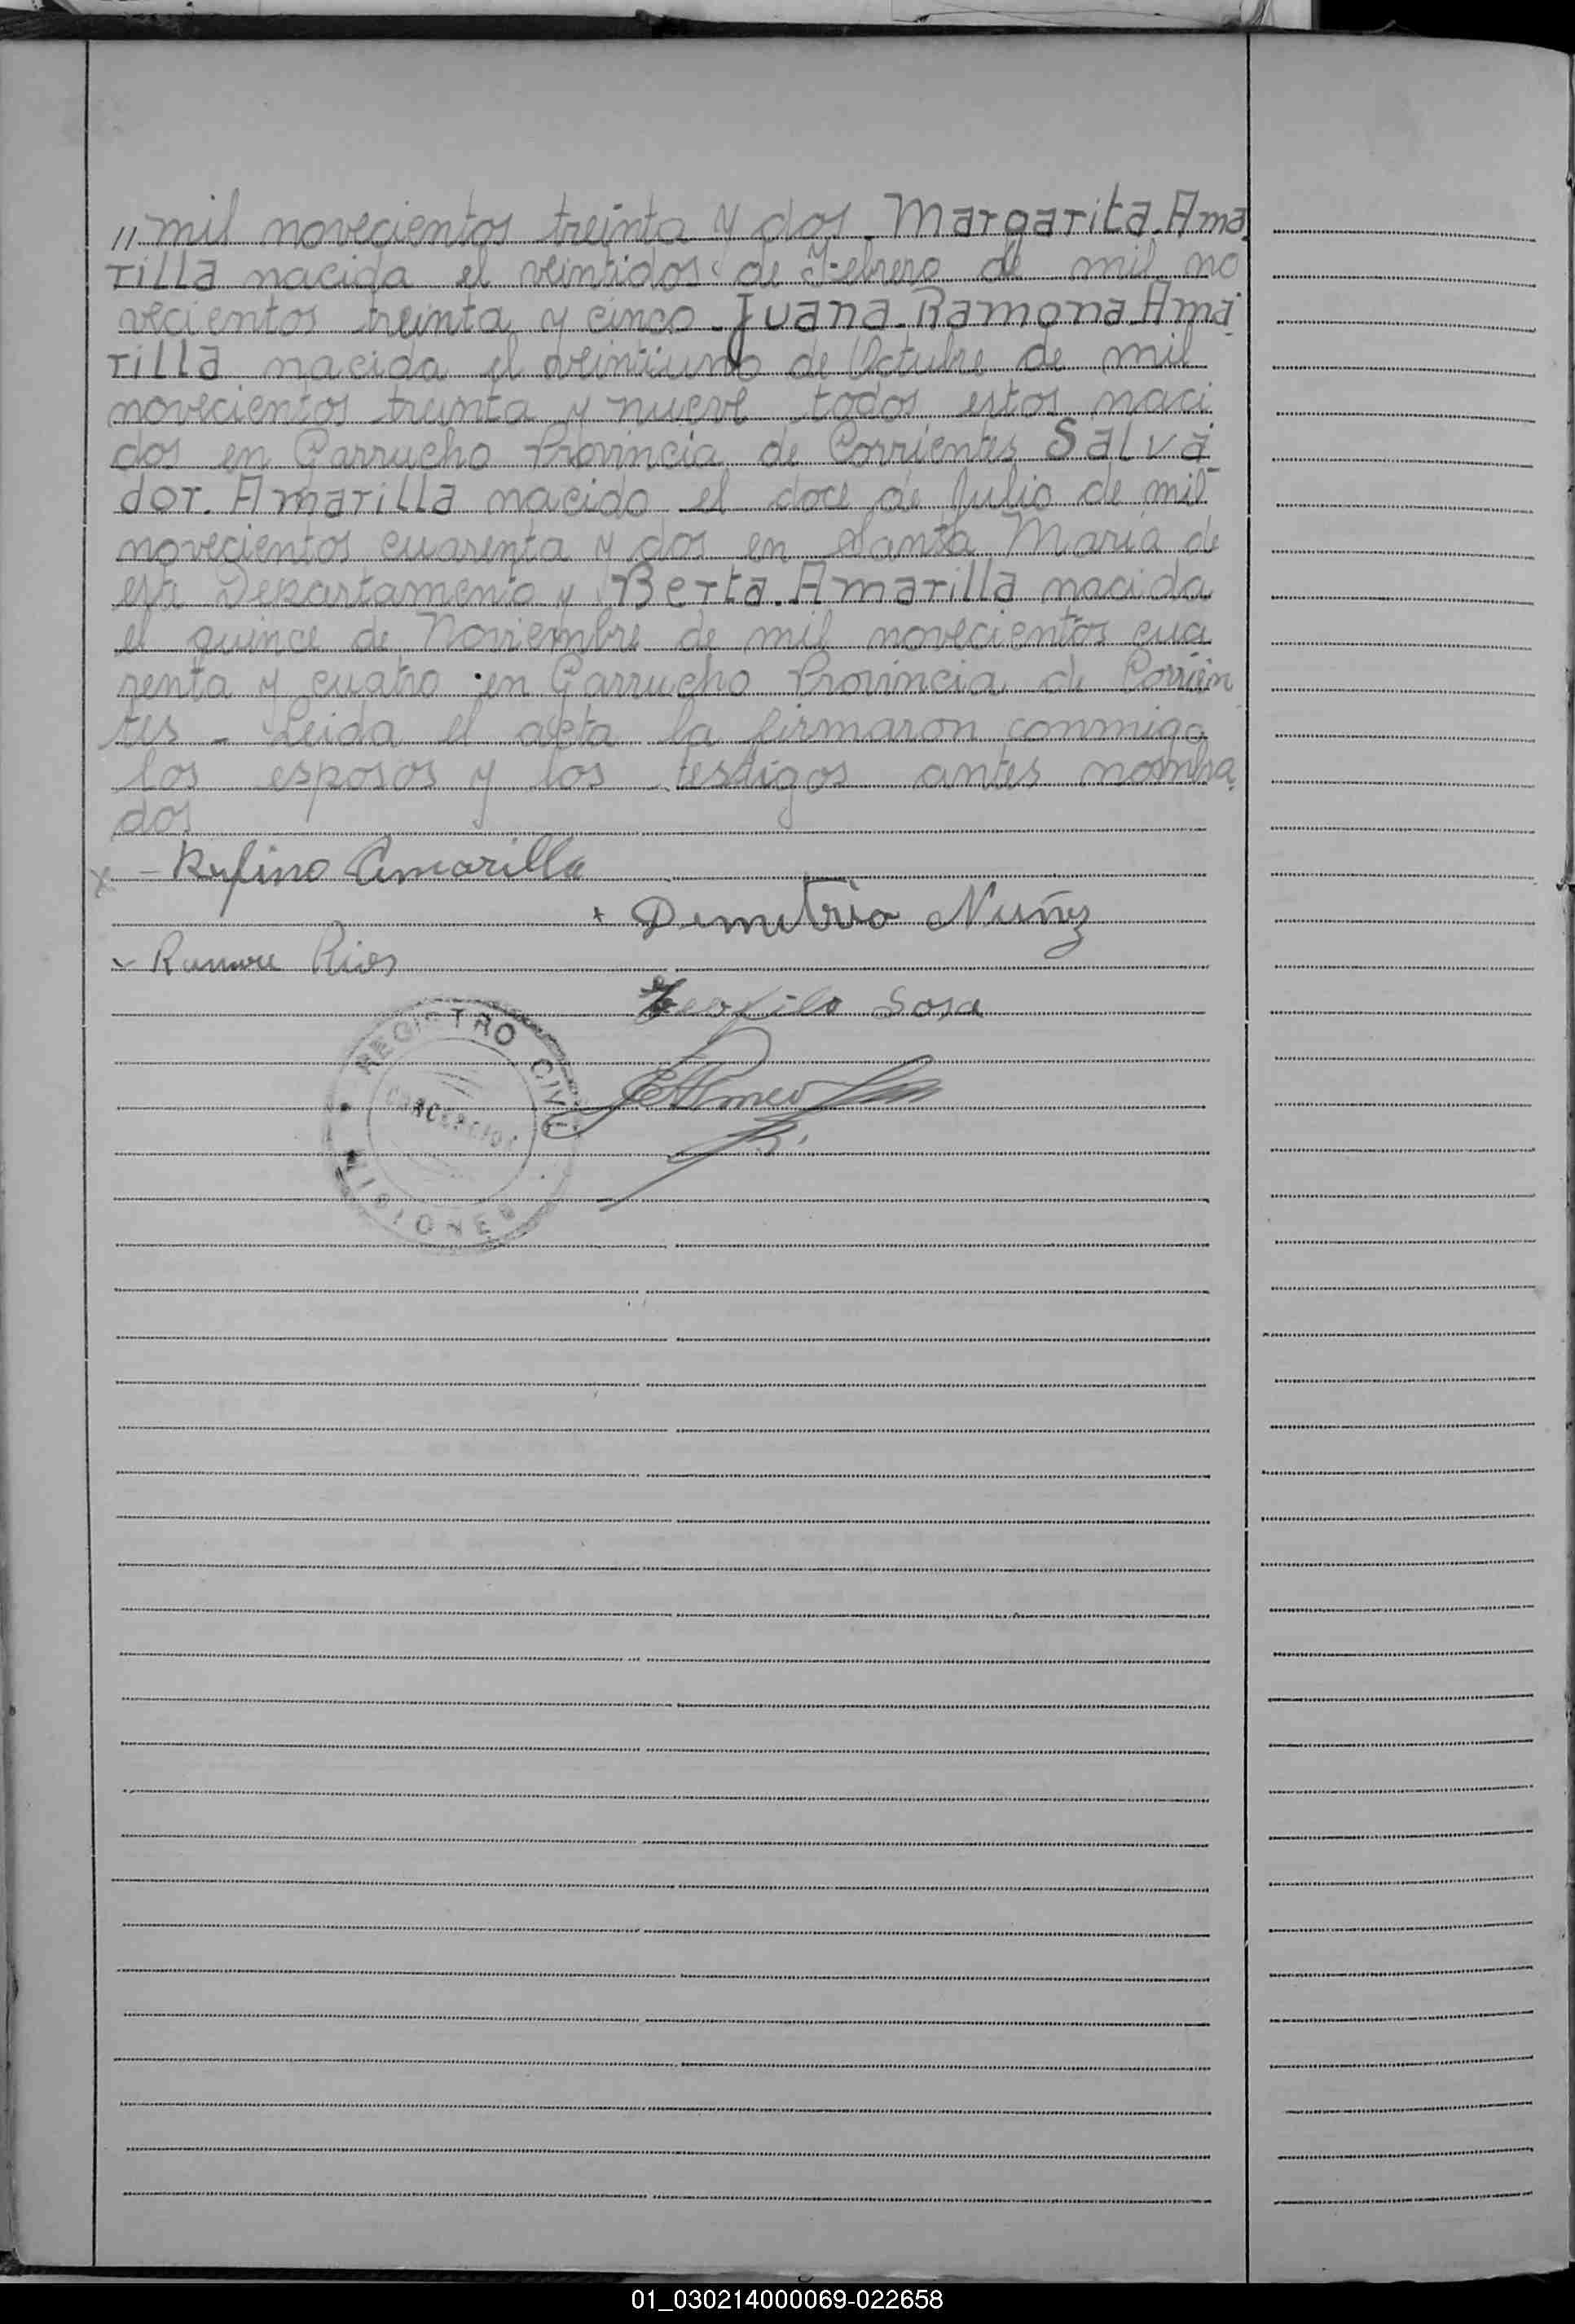 "mil novecientos treinta y dos. Margarita. Ama
rilla nacida el veintidos de Febrero de mil no
vecientos treinta y cinco. Juana. Ramona. Ama
rilla nacida el veintiuno de Octubre de mil
novecientos treinta y nueve todos estos naci
dos en Garrucho Provincia de Corrientes Salva
dor. Amarilla nacido el doce de Julio de mil
novecientos cuarenta y dos en Santa Maria de
este Departamento y Berta. Amarilla nacida
el quince de Noviembre de mil novecientos cua
renta y cuatro en Garrucho Provincia de Corrien
tes - Leida el acta la firmaron conmigo
los esposos y los testigos antes nombra
dos
x - Rufino Amarilla
+ Demetria Nuñez
Rios
Teofilo Sosa
REGISTRO CIVIL
CONCEPCION
MISIONES
01_030214000069-022658